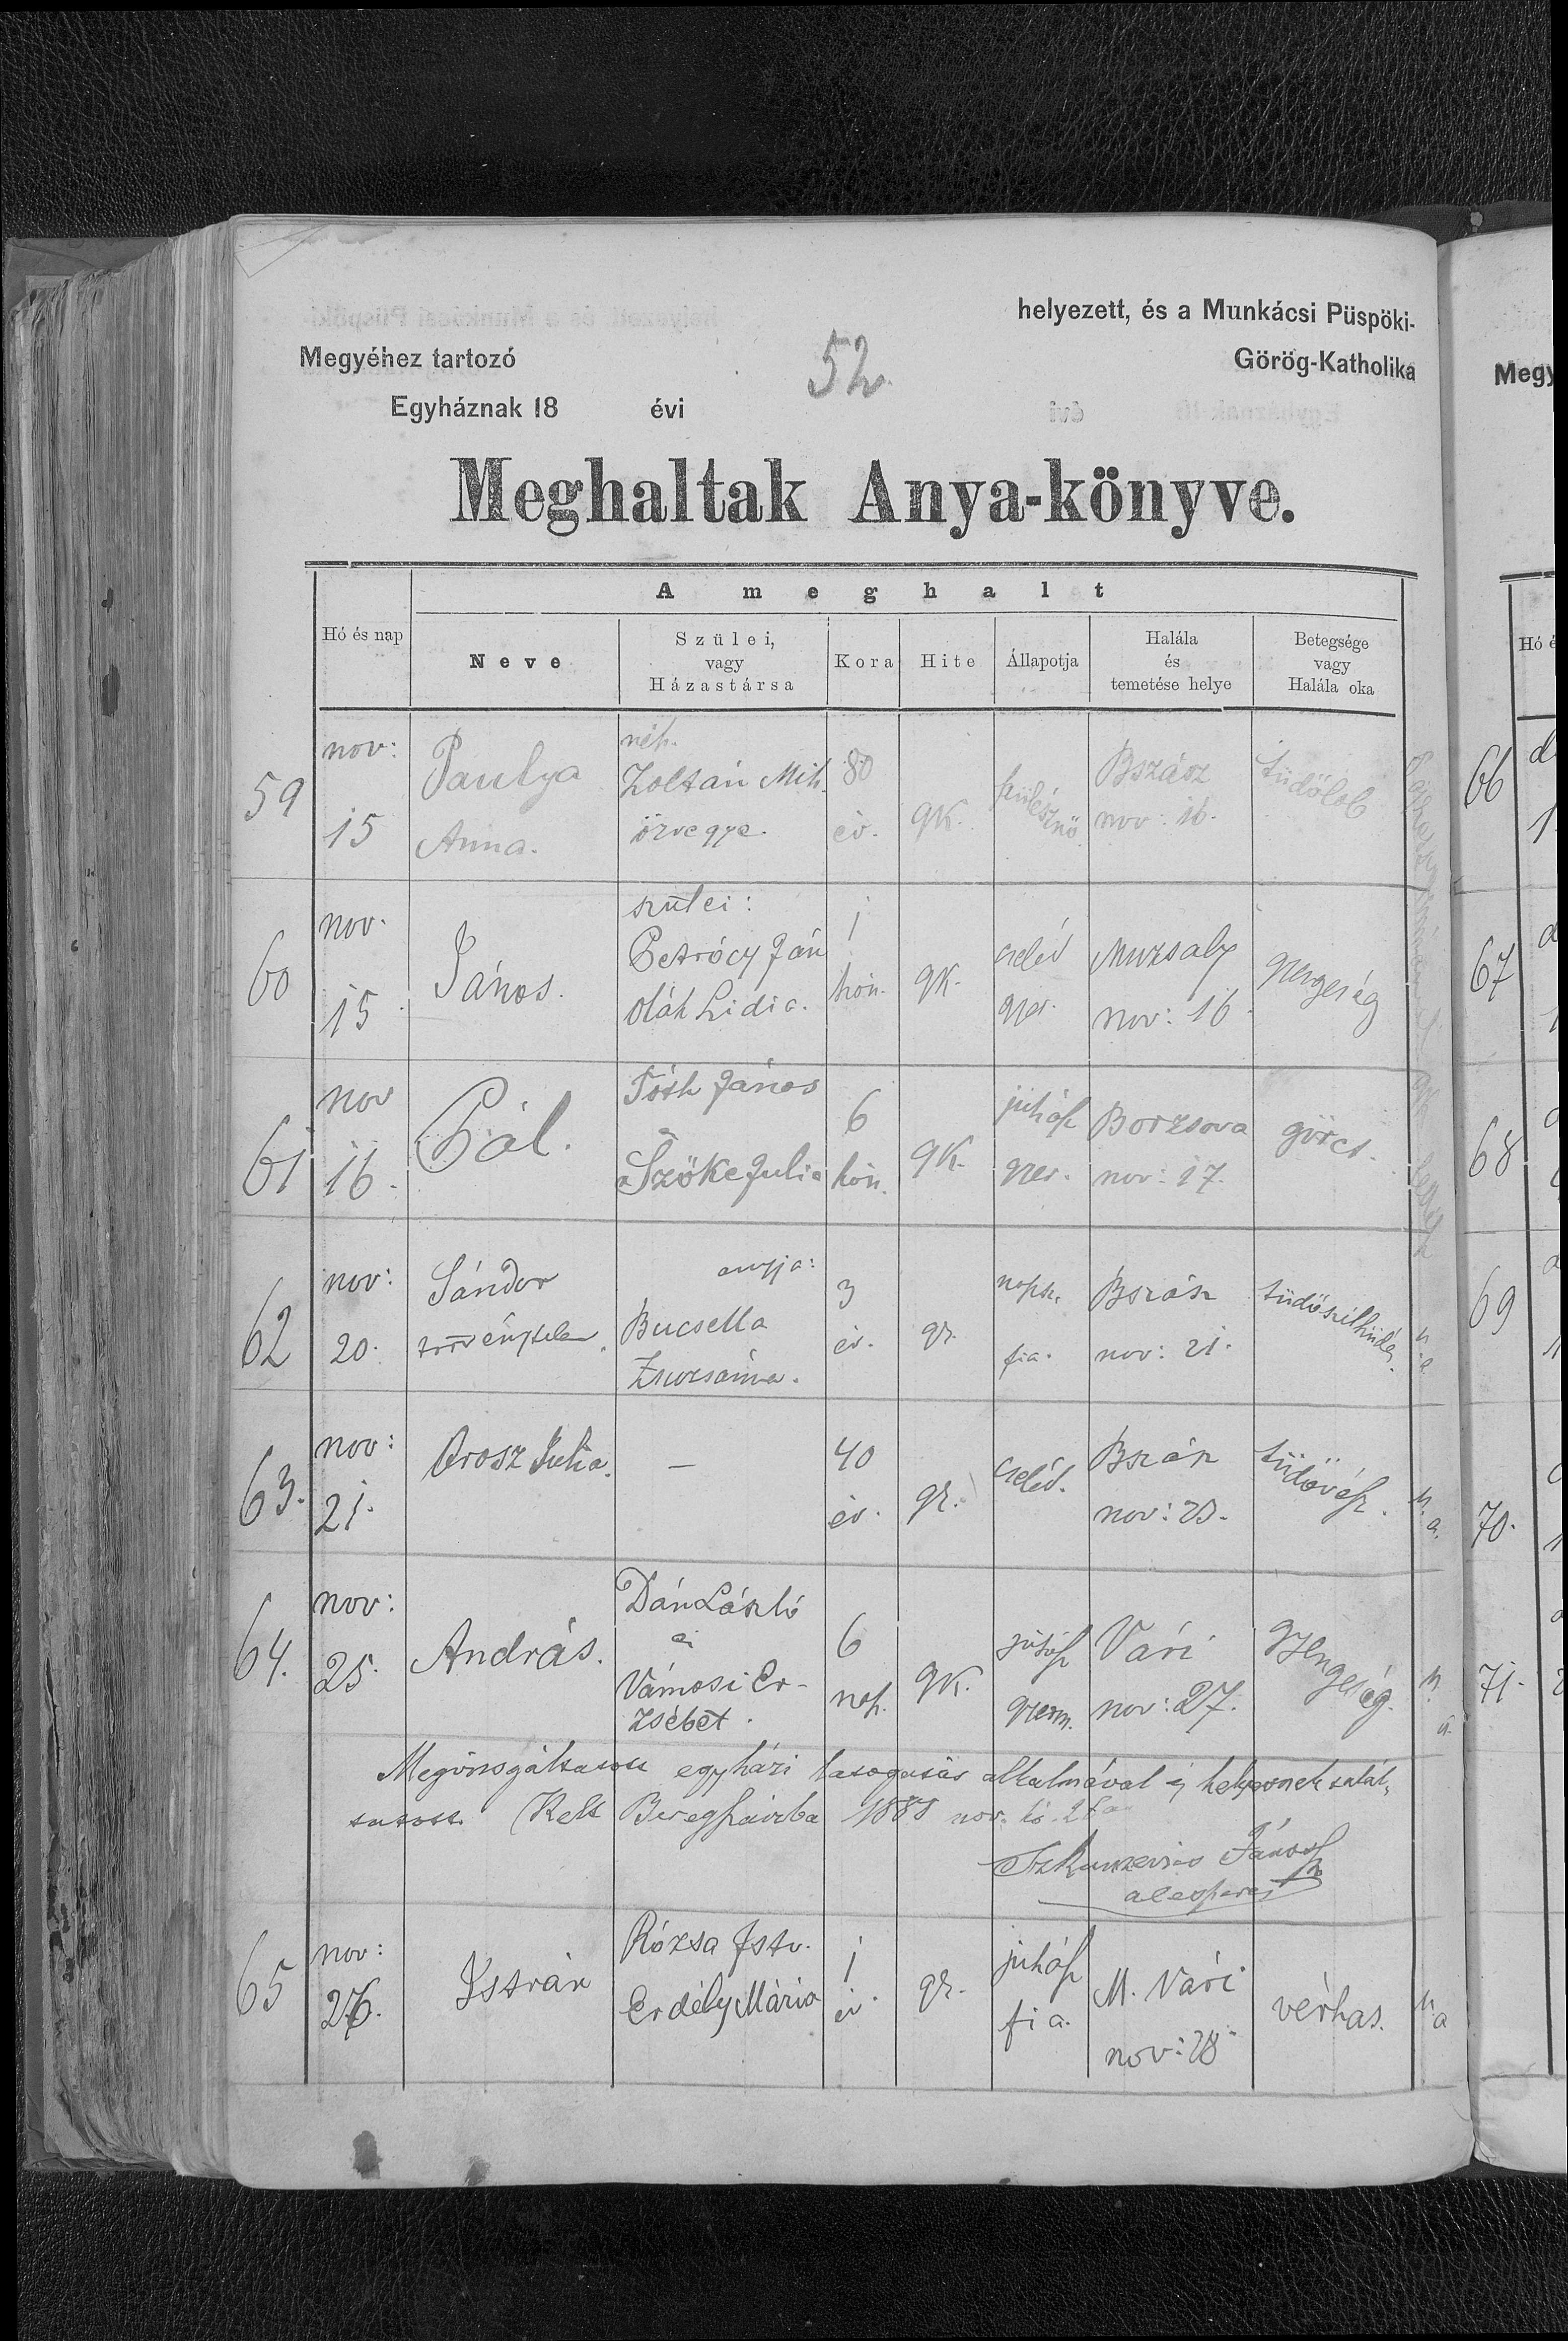 helyezett, és a Munkácsi Püspöki-
Megyéhez tartozó 52. Görög-Katholika
Egyháznak 18 évi
Meghaltak Anya-könyve.
A meghalt
Hó és nap
Neve
Szülei,
vagy
Házastársa
Kora
Hite
Állapotja
Halála
és
temetése helye
Betegsége
vagy
Halála oka
59
nov:
15
Paulya
Anna.
néh.
Zoltán Mih.
özvegye.
80
év.
gk.
szülésznö
Bszász
nov: 16.
tüdőlob
60
nov.
15.
János.
szülei:
Petrócy Ján
oláh Lidia.
1
hón.
gk.
cseléd
gyer.
Muzsaly
nov: 16.
gyengeség
61
nov
16.
Pál.
Tóth János
és
Szőke Julia
6
hón.
gk.
juhász
gyer.
Borzsova
nov: 17.
görcs.
62
nov:
20.
Sándor
törvénytelen.
anyja:
Bucsella
Zsuzsánna.
3
év.
gk.
napsz.
fia.
Bszász
nov: 21.
tüdőszélhüdés.
u.
a
63.
nov:
21.
Orosz Julia.
—
40
év.
gk.
cseléd.
Bszász
nov: 23.
tüdővész.
u.
a.
64.
nov:
25.
András.
Dán László
és
Vámosi Er-
zsébet.
6
nap.
gk.
juhász
gyerm.
Vári
nov: 27.
gyengeség.
u.
a.
Megvizsgáltatott egyházi látogatás alkalmával és helyesnek talál-
tatott. Kelt Beregszászba 1888 nov. hó
János
alesperes
65
nov:
26.
István
Rózsa Istv.
Erdély Mária
1
év.
gk.
juhász
fia.
M. Vári
nov: 28
vérhas.
u.
a
66
67
68
69
70.
71.
Megy
Hó é